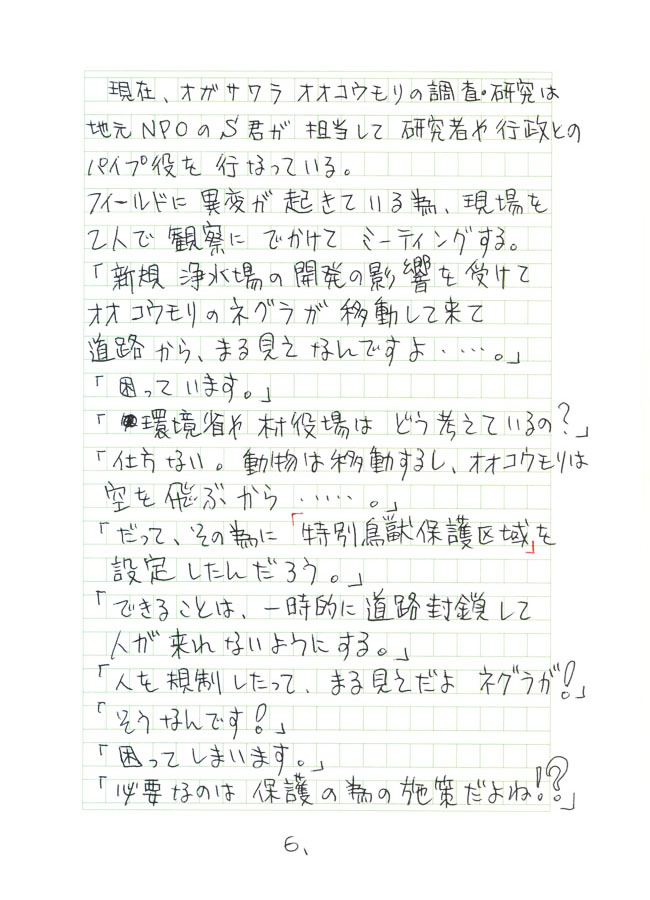 現在、オガサワラオオコウモリの調査・研究は
地元NPOのS君が担当して研究者や行政との
パイプ役を行なっている。
フィールドに異変が起きている為、現場を
2人で観察にでかけてミーティングする。
「新規浄水場の開発の影響を受けて
オオコウモリのネグラが移動して来て
道路から、まる見えなんですよ‥‥。」
「困っています。」
「環境省や村役場はどう考えているの?」
「仕方ない。動物は移動するし、オオコウモリは
空を飛ぶから‥‥‥。」
「だって、その為に「特別鳥獣保護区域」を
設定したんだろう。」
「できることは、一時的に道路封鎖して
人が来れないようにする。」
「人を規制したって、まる見えだよネグラが!」
「そうなんです!」
「困ってしまいます。」
「必要なのは保護の為の施策だよね!?」
6、